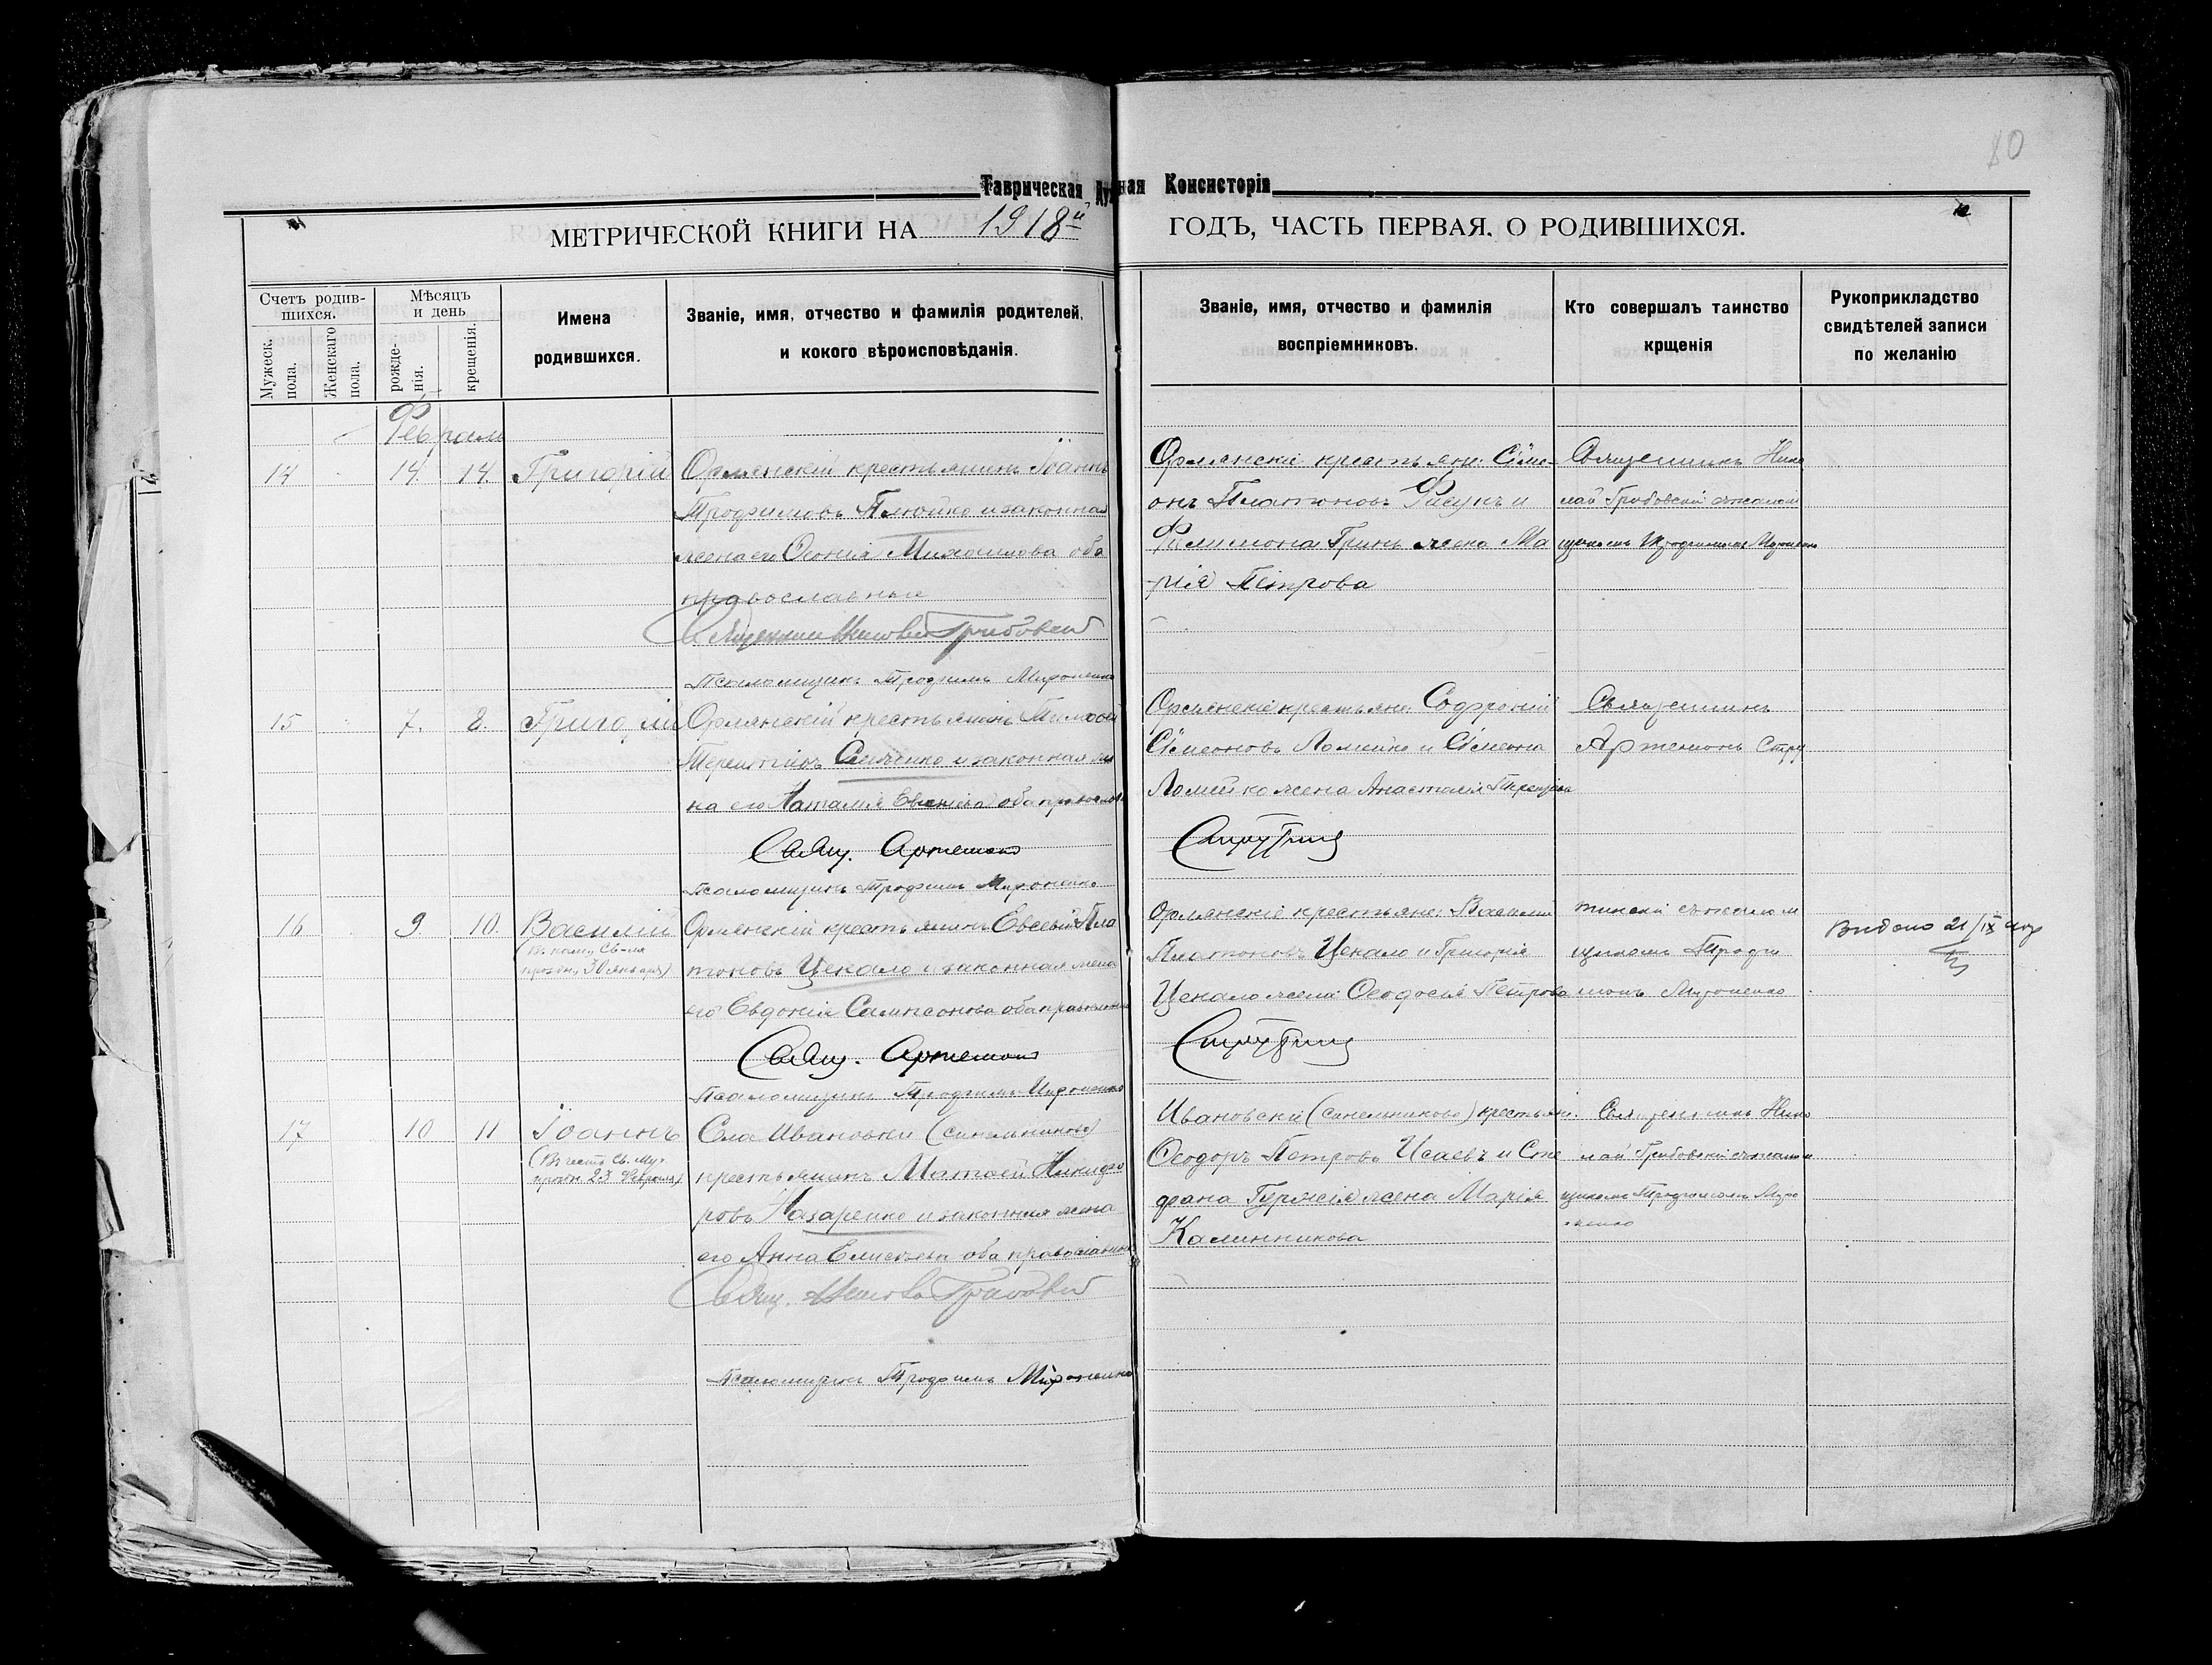 80
Таврическая Духовная Консисторія
МЕТРИЧЕСКОЙ КНИГИ НА 1918й ГОДЪ, ЧАСТЬ ПЕРВАЯ. О РОДИВШИХСЯ.
Счетъ родив-
шихся.
Мужеск. пола.
Женскаго пола.
Мѣсяцъ
и день
рожде-
нія.
крещенія.
Имена
родившихся.
Званіе, имя, отчество и фамилія родителей,
и кокого вѣроисповѣданія.
Званіе, имя, отчество и фамилія
воспріемниковъ.
Кто совершалъ таинство
крщенія
Рукоприкладство
свидѣтелей записи
по желанію
Февраль
14 14. 14 Григорій
Орлянскій крестьянинъ Іоаннъ
Трофимовъ и законная
жена его Михаилова оба
православные
Священникъ Николай Грибовскій
Псаломщикъ Трофимъ Мироненко
Орлянскіе крестьяне: Симе-
онъ Платоновъ и
Филимона Гринь жена Ма
рія Петрова
Священникъ Нико
лай Грибовскій съ псалом
щикомъ Трофимомъ Мироненко
15 7. 8. Григорій
Орлянскій крестьянинъ Тимоѳей
Терентіевъ и законная же
на его Наталія оба православн
Свящ. Артемонъ
Псаломщикъ Трофимъ Мироненко
Орлянскіе крестьяне Софроній
Симеоновъ Ломейко и Симеона
Ломейко жена Анастасія
Священникъ
Артемонъ Стру
16 9. 10. Василій
30 января)
Орлянскій крестьянинъ Евсевій Пла
тоновъ Цекало и законная жена
его Евдокія Сампсонова оба православные
Свящ. Артемонъ
Псаломщикъ Трофимъ Мироненко
Орлянскіе крестьяне: Василій
Платоновъ Цекало и Григорія
Цекало жена Ѳеодосія Петрова
тинскій съ псалом
щикомъ Трофи
момъ Мироненко
Видано 21/IX
17 10 11 Іоаннъ
(Въ честь Св.
23 Февраля)
Села Ивановки (Синельниково)
крестьянинъ Матѳей Никифо
ровъ Назаренко и законная жена
его Анна Елисѣева оба православные
Свящ. Николай Грибовскій
Псаломщикъ Трофимъ Мироненко
Ивановскіе (Синельниково) крестьяне:
Ѳеодоръ Петровъ Исаевъ и Сте
фана жена Марія
Калинникова
Священникъ Нико
лай Грибовскій съ псалом
щикомъ Трофимомъ Миро
ненко